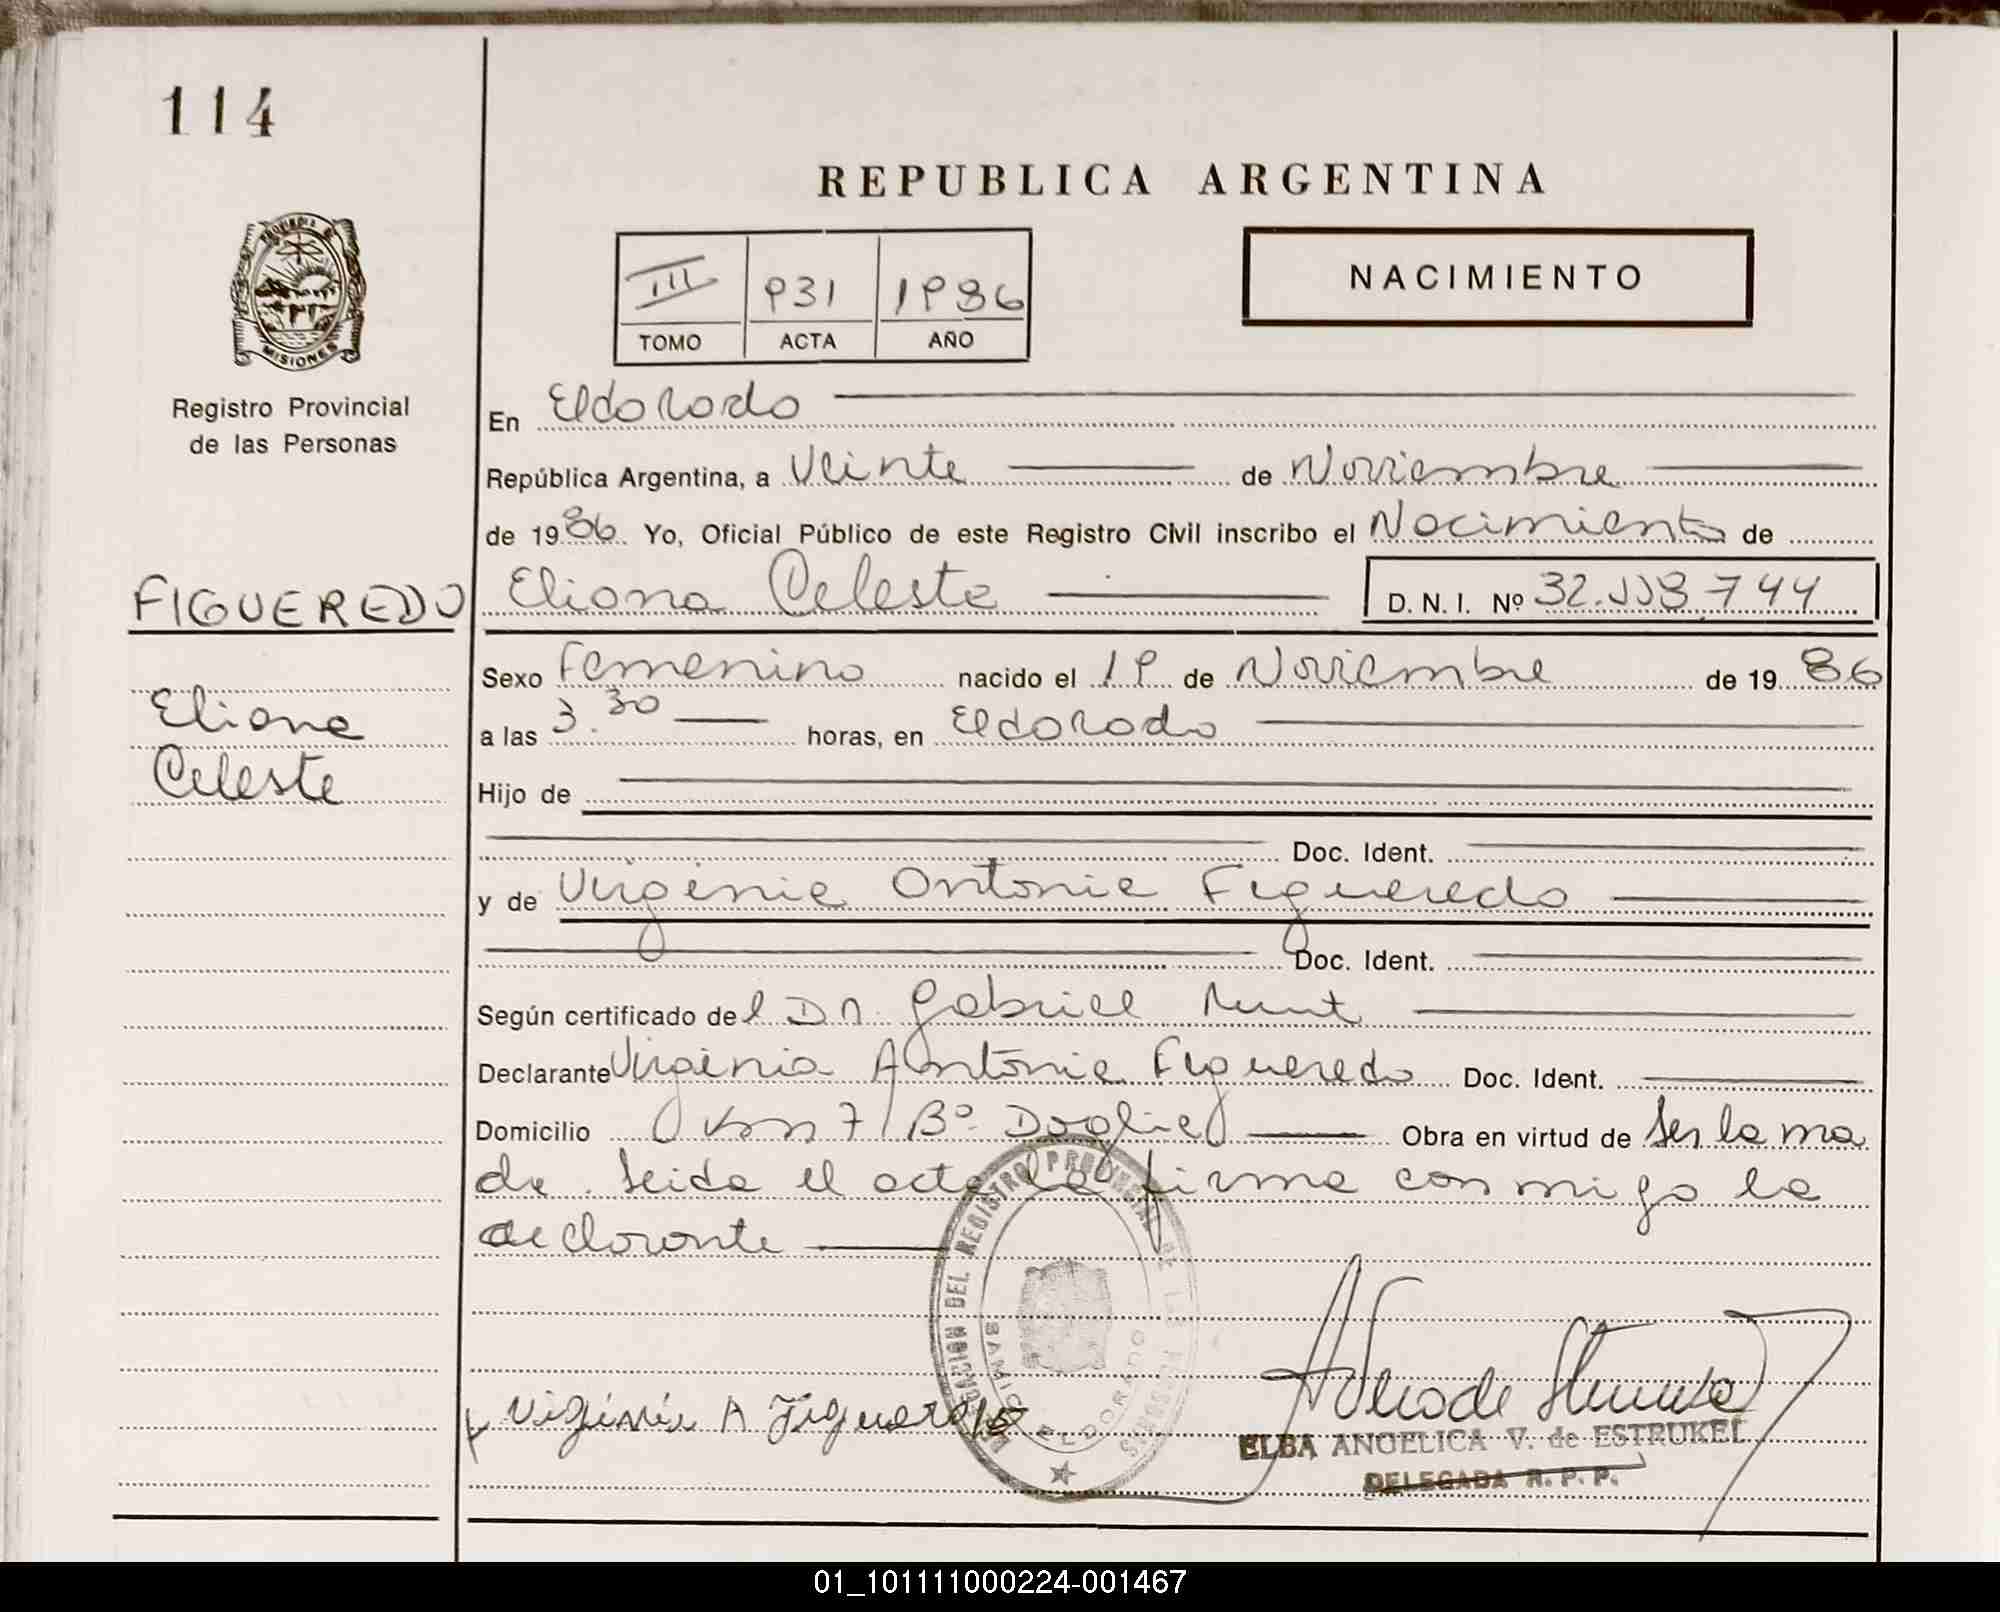 114
REPUBLICA ARGENTINA
PROVINCIA DE
MISIONES
Registro Provincial
de las Personas
III 931 1986
TOMO ACTA AÑO
NACIMIENTO
En Eldorado
República Argentina, a Veinte de Noviembre
de 1986. Yo, Oficial Público de este Registro Civil inscribo el Nacimiento de
FIGUEREDO
Eliana Celeste
D. N. I. Nº 32.558.744
Eliana
Celeste
Sexo Femenino nacido el 19 de Noviembre de 19 86
a las 3.30 horas, en Eldorado
Hijo de
Doc. Ident.
y de Virginia Antonia Figueredo
Doc. Ident.
Según certificado del Dr. Gabriel
Declarante Virginia Antonia Figueredo Doc. Ident.
Domicilio Km 7 Bº Doglio Obra en virtud de ser la ma
dre. Leida el acta la firma conmigo la
declarante
Virginia A Figueredo
ELDORADO
ELBA ANGELICA V. de ESTRUKEL
DELEGADA R. P. P.
01_101111000224-001467